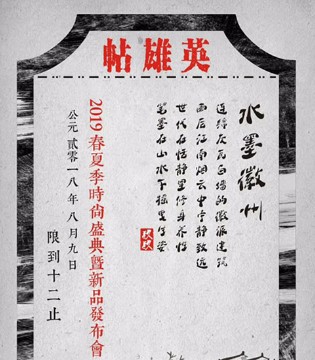 英雄帖
水墨徽州
连绵灰瓦白墙的徽派建筑
西居江南烟云中宁静致远
世代在恬静里修身养性
笔墨在山水下
2019春夏季時尚盛典暨新品發布會
公元 貳零一八年八月九日
限到十二止